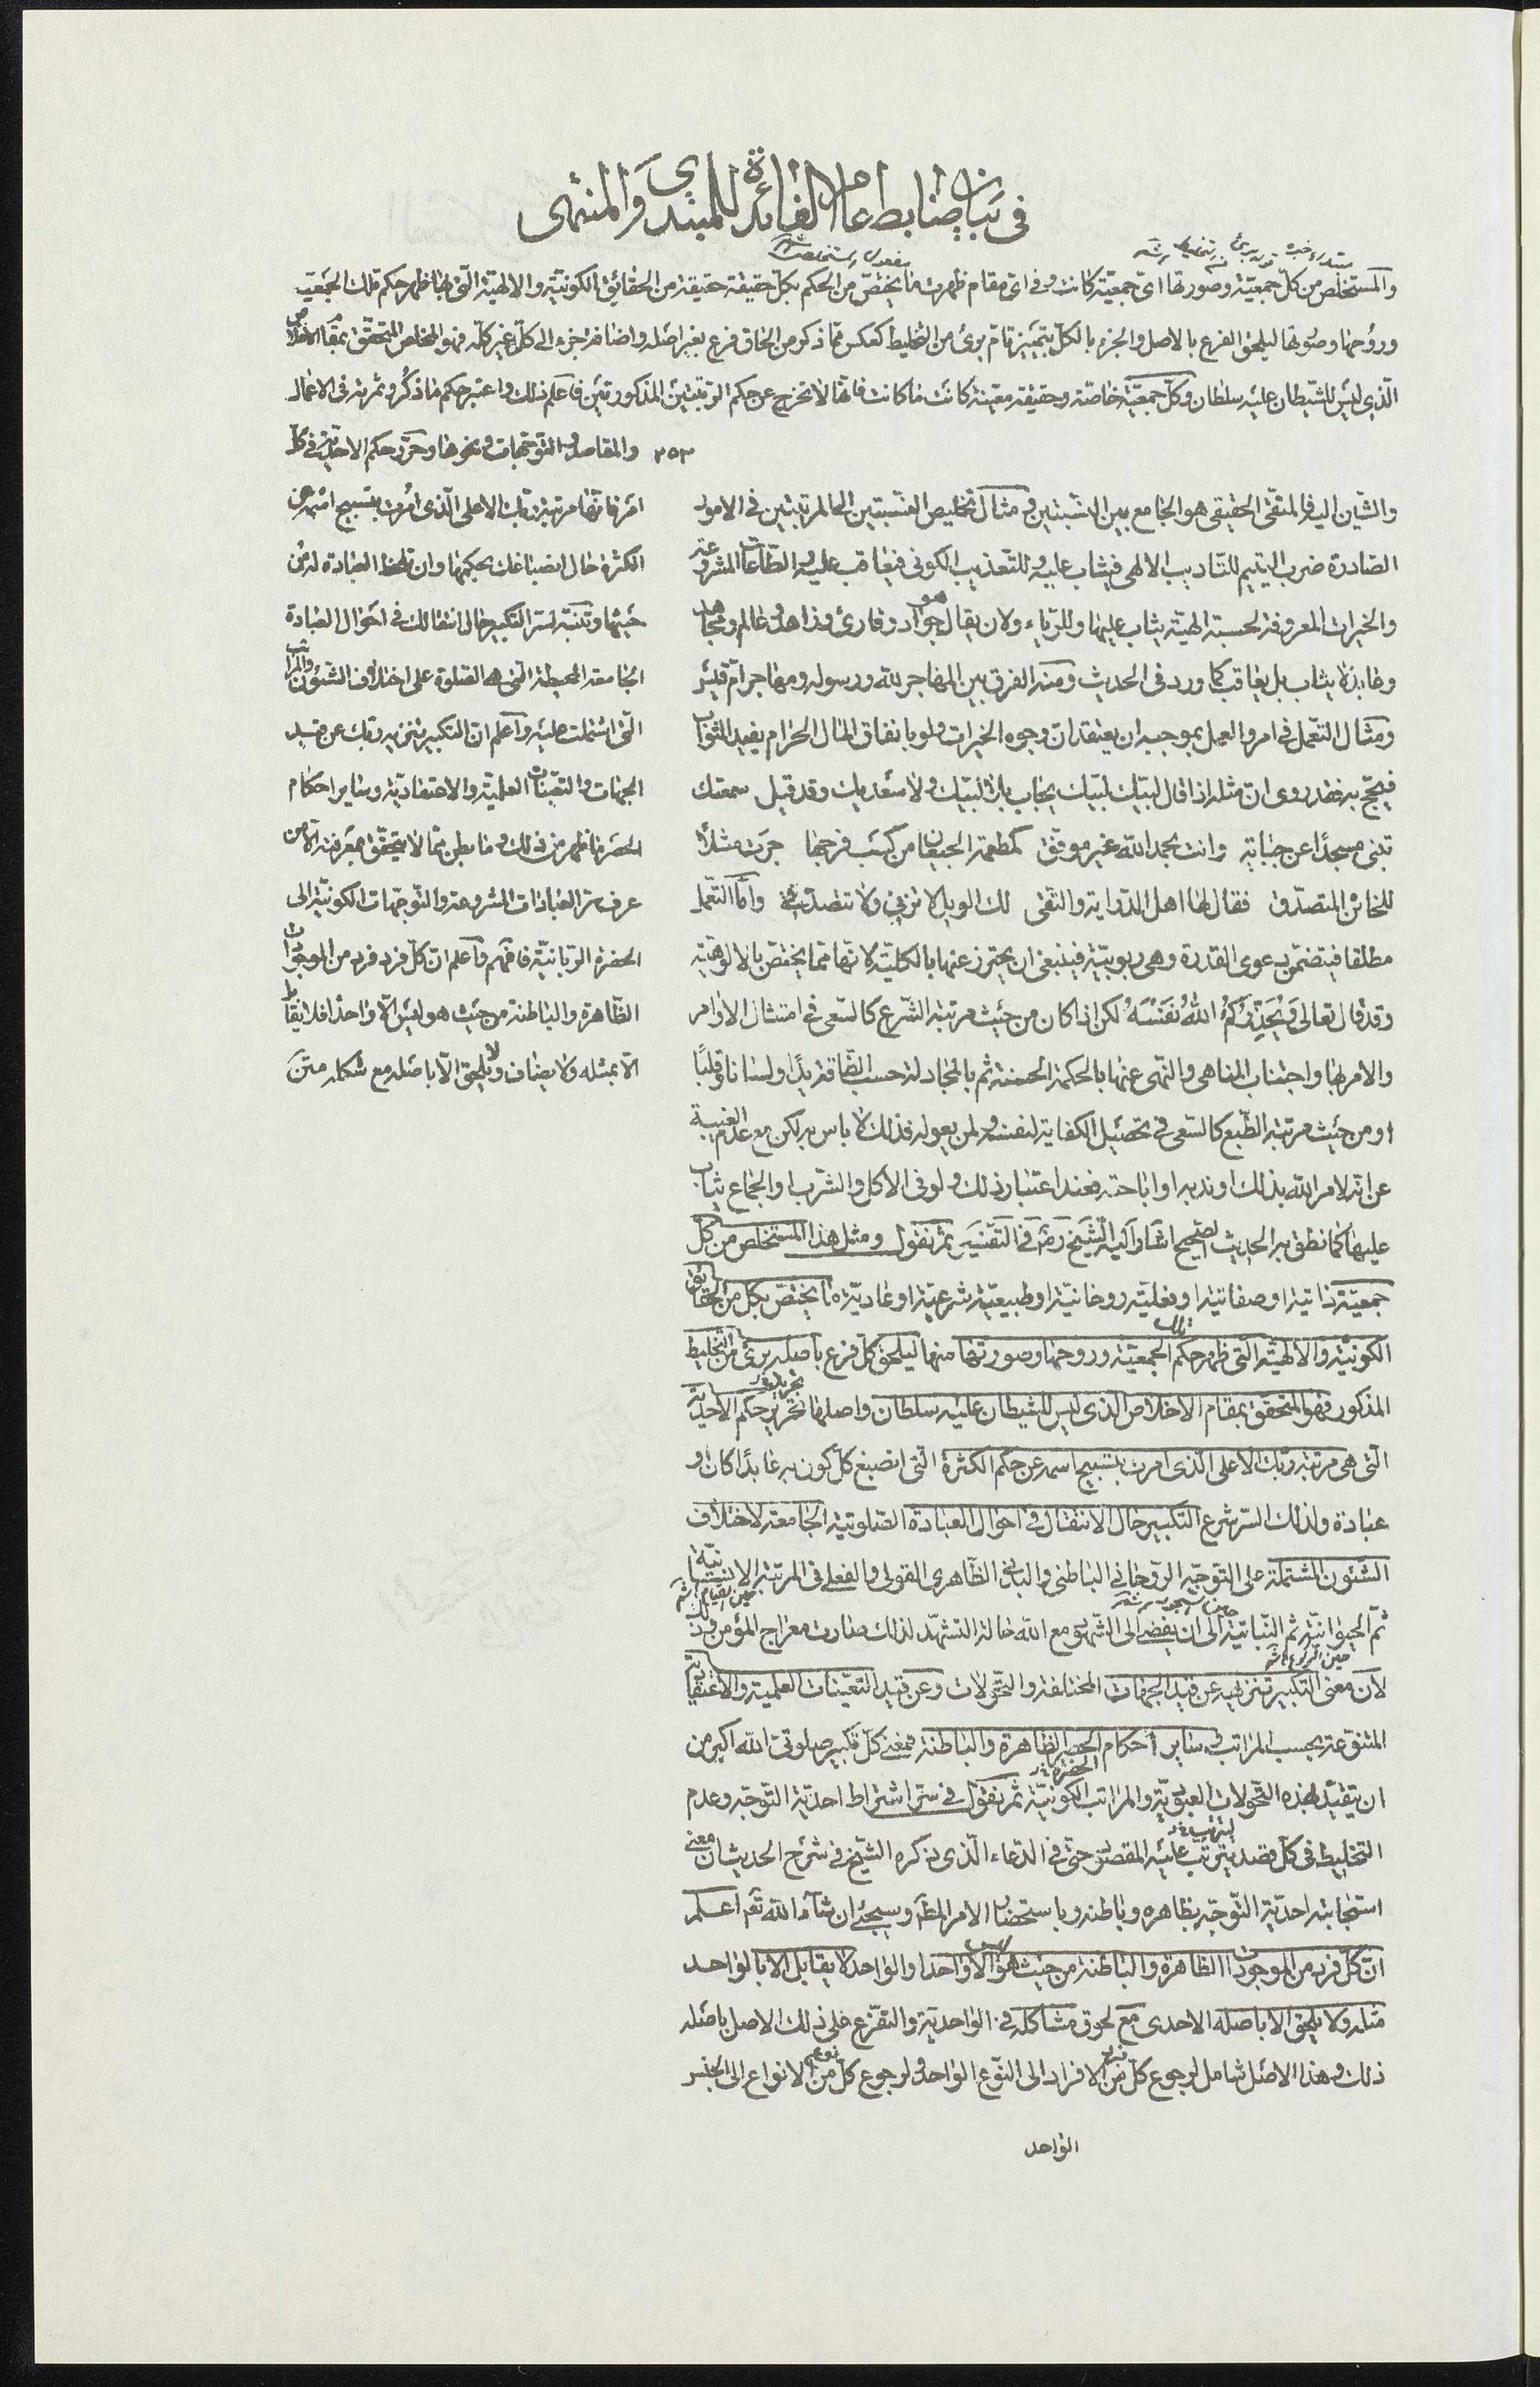 في بيان ضابط عام الفائدة للمبتدي والمنتهى
والمستخلص من كل جمعية وصورتها اى جمعية كانت وفى اى مقام ظهرت ما يختص من الحكم بكل حقيقة حقيقة من الحقائق الكونية والالهية التى بها ظهر حكم تلك الجمعية
وروحها وصورتها ليلحق الفرع بالاصل والجزء بالكل بتمييز تام برئ من التخليط كعكس مما ذكر من الحاق فرع بغير اصله واضافة جزء الى كل غير كله فهو المخلص المتحقق بمقام الاخلاص
الذى ليس للشيطان عليه سلطان وكل جمعية خاصة وحقيقة معينة كانت ما كانت فانها لا تخرج عن حكم الرتبتين المذكورتين فاعلم ذلك واعتبر حكم ما ذكر وثمرته فى الاعمال
٣٥٣ والمقاصد والتوجهات ونحوها وحرر حكم الاحدية فى كل
امر فانها مرتبة ربك الاعلى الذى امرت بتسبيح اسمه عن
الكثرة حال انصباغك بحكمها وان تلحظ العبادة له من
حيثها وتنبه لسر التكبير حال انتقالك فى احوال العبادة
الجامعة المحيطة التى هى الصلوة على اختلاف الشئون والمراتب
التى اشتملت عليه واعلم ان التكبير تنزيه ربك عن قيد
الجهات والتعينات العلمية والاعتقادية وساير احكام
الحصر ما ظهر من ذلك وما بطن مما لا يتحقق بمعرفته الا من
عرف سر العبادات المشروعة والتوجهات الكونية الى
الحضرة الربانية فافهم واعلم ان كل فرد فرد من الموجودات
الظاهرة والباطنة من حيث هو ليس الا واحدا فلا يقابل
الا بمثله ولا يضاف ولا يلحق الا باصله مع شكله متن
والشين اليه فالمتقى الحقيقى هو الجامع بين النسبتين ومثال تخليص النسبتين الى المرتبتين فى الامور
الصادرة ضرب اليتيم للتاديب الالهى فيثاب عليه وللتعذيب الكونى فيعاقب عليه والطاعات المشروعة
والخيرات المعروفة لحسبة الهية يثاب عليها وللرياء ولان يقال هو جواد وقارئ وزاهد وعالم ومجاهد
وعابد لا يثاب بل يعاقب كما ورد فى الحديث ومنه الفرق بين المهاجر لله ورسوله ومهاجر ام قيس
ومثال التعمل فى امر والعمل بموجبه ان يعتقد ان وجوه الخيرات ولو بانفاق المال الحرام يفيد الثواب
فيحج به فقد روى ان مثله اذا قال لبيك لبيك يجاب بلا لبيك ولا سعديك وقد قيل سمعتك
تبنى مسجدا عن جباية وانت بحمد الله غير موفق كمطعمة الجيعان من كسب فرجها جرت مثلا
للخائن المتصدق فقال لها اهل الدراية والتقى لك الويل لا تزنى ولا تتصدقى واما التعمل
مطلقا فيتضمن دعوى القدرة وهى ربوبية فينبغى ان يحترز عنها بالكلية لانها مما يختص بالالوهية
وقد قال تعالى وَيُحَذِّرُكُمُ اللهُ نَفْسَهُ لكن اذا كان من حيث مرتبة الشرع كالسعى فى امتثال الاوامر
والامر بها واجتناب المناهى والنهى عنها بالحكمة الحسنة ثم بالمجادلة حسب الطاقة يدا ولسانا وقلبا
او من حيث مرتبة الطبع كالسعى فى تحصيل الكفاية لنفسه ولمن يعوله فذلك لا باس به لكن مع عدم الغيبة
عن انه لامر الله بذلك او ندبه او اباحته فعند اعتبار ذلك ولو فى الاكل والشرب والجماع يثاب
عليها كما نطق به الحديث الصحيح اشار اليه الشيخ رضه فى التفسير ثم نقول ومثل هذا المستخلص من كل
جمعية ذاتية او صفاتية او فعلية روحانية او طبيعية شرعية او عادية ما يختص بكل من الحقايق
الكونية والالهية التى ظهر حكم تلك الجمعية وروحها وصورتها منها ليلحق كل فرع باصله برئ من التخليط
المذكور فهو المتحقق بمقام الاخلاص الذى ليس للشيطان عليه سلطان واصلها تحرير حكم الاحدية
التى هى مرتبة ربك الاعلى الذى امرت بتسبيح اسمه عن حكم الكثرة التى انصبغ كل كون به عابدا كان او
عبادة ولذلك السر شرع التكبير حال الانتقال فى احوال العبادة الصلوتية الجامعة لاختلاف
الشئون المشتملة على التوجه الروحانى الباطنى والبدنى الظاهرى القولى والفعلى فى المرتبة الانسانية
ثم الحيوانية ثم النباتية الى ان يفضى الى الشهود مع الله حالة التشهد لذلك صارت معراج المؤمن وذلك
لان معنى التكبير تنزيهه عن قيد الجهات المختلفة والتحولات وعن قيد التعينات العلمية والاعتقادية
المتنوعة بحسب المراتب وساير احكام الحصر الظاهرة والباطنة فمعنى كل تكبير صلوتى الله اكبر من
ان يتقيد بهذه التحولات العبودية والمراتب الكونية ثم نقول فى سر اشتراط احدية التوجه وعدم
التخليط فى كل قصد يترتب عليه المقصود حتى فى الدعاء الذى ذكره الشيخ فى شرح الحديث ان معنى
استجابته احدية التوجه بظاهره وباطنه وباستحضار الامر المط وسيجئ ان شاء الله تعم اعلم
ان كل فرد من الموجودات الظاهرة والباطنة من حيث هو ليس الا واحدا والواحد لا يقابل الا بالواحد
مثله ولا يلحق الا باصله الاحدى مع لحوق مشاكله فى الواحدية والتفرع على ذلك الاصل باصله
ذلك وهذا الاصل شامل لرجوع كل فرد من الافراد الى النوع الواحد ولرجوع كل نوع من الانواع الى الجنس
الواحد